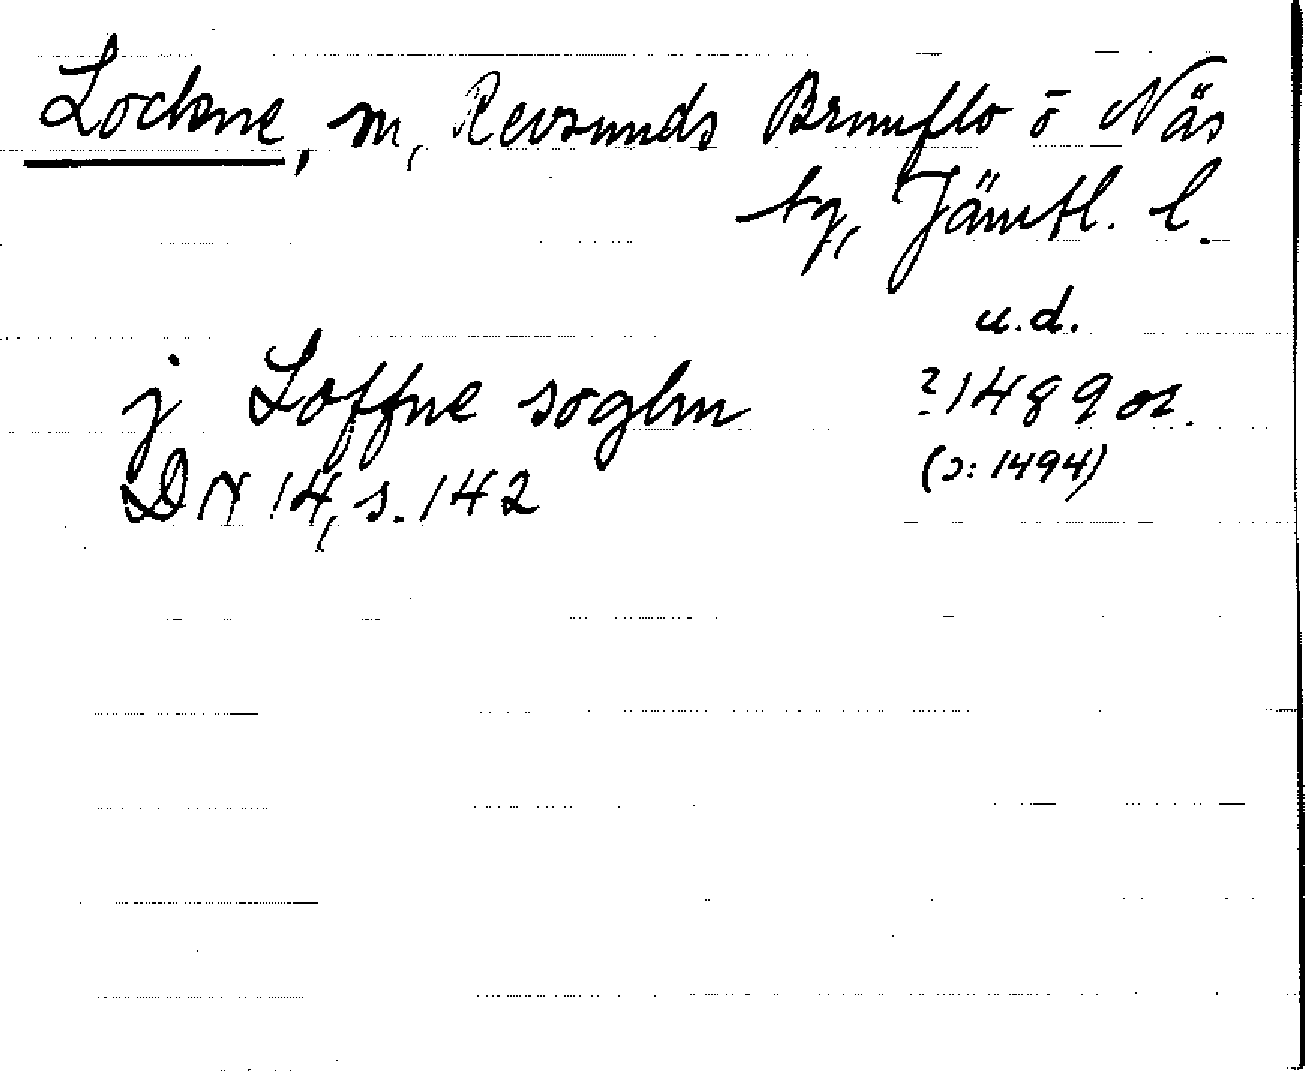 Lockne, sn, Revsunds Brunflo o Näs
tg, Jämtl. l.
u.d.
j Loffne soghn ?1489 or.
DN 14, s. 142 (ɔ: 1494)